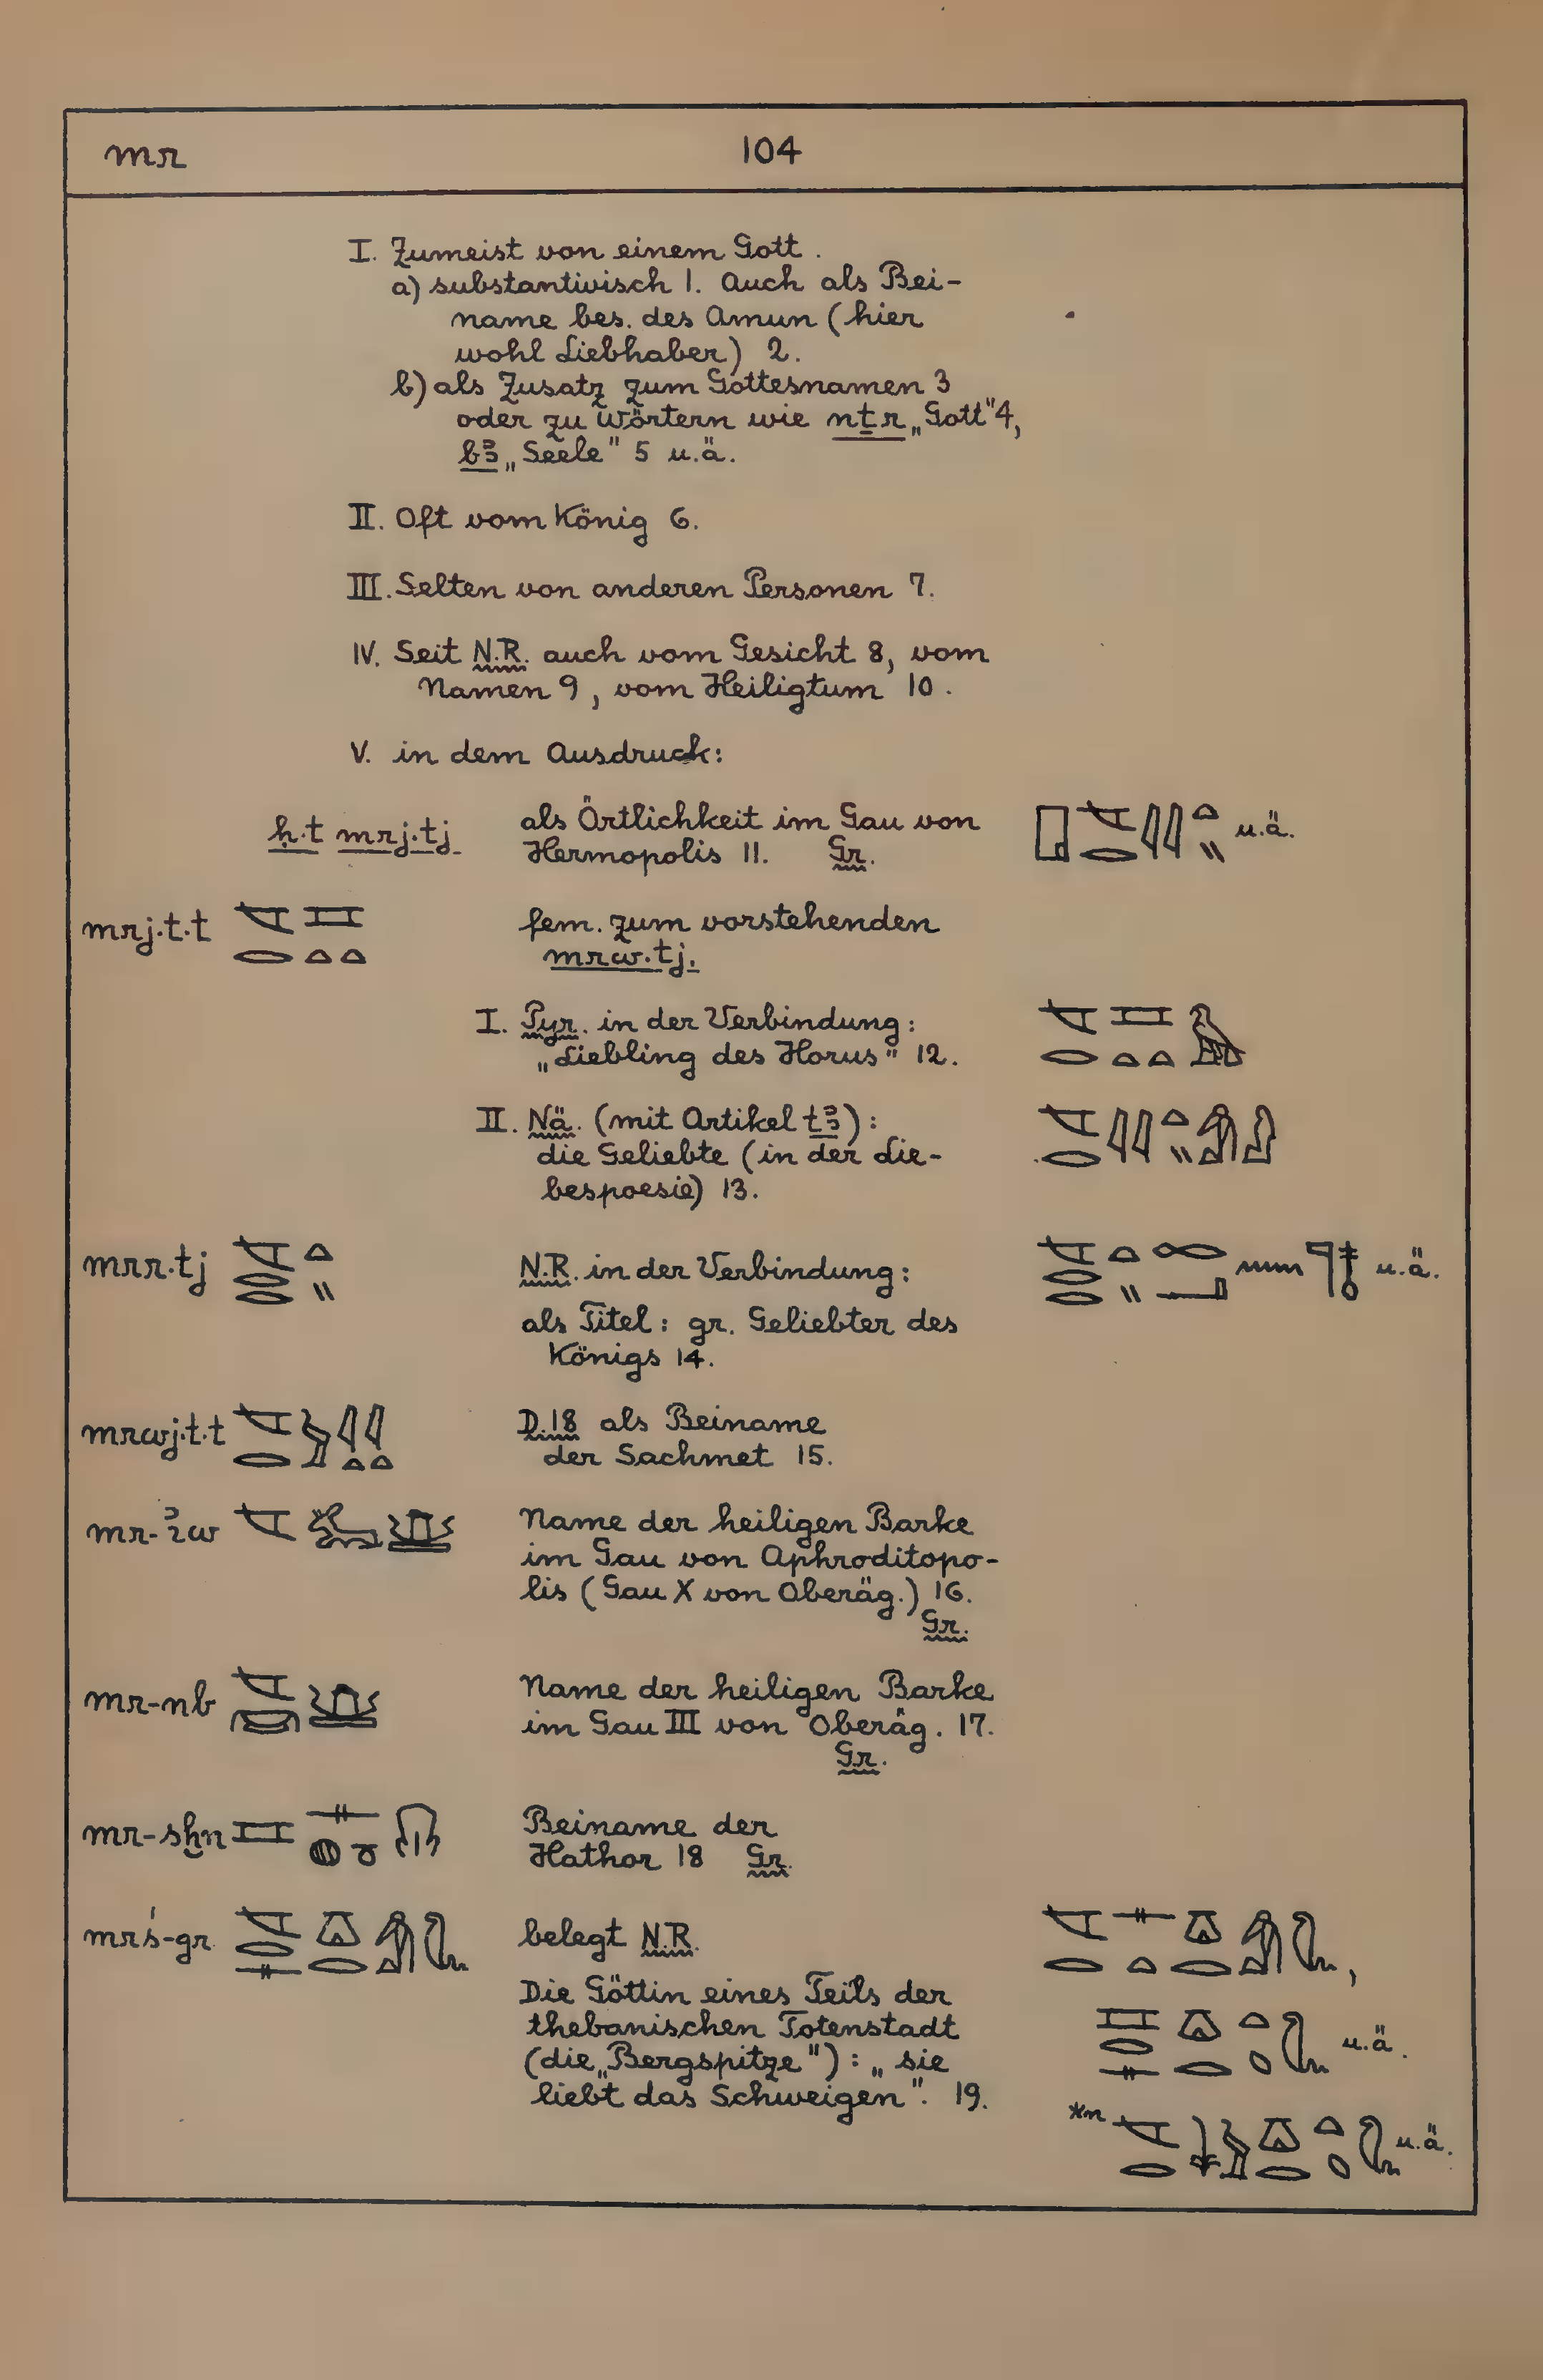 mr 104
I. Zumeist von einem Gott.
a) substantivisch 1. Auch als Bei-
name bes. des Amun (hier
wohl Liebhaber) 2.
b) als Zusatz zum Gottesnamen 3
oder zu Wörtern wie nṯr „Gott" 4,
bꜣ „Seele" 5 u.ä.
II. Oft vom König 6.
III. Selten von anderen Personen 7.
IV. Seit N.R. auch vom Gesicht 8, vom
Namen 9, vom Heiligtum 10.
V. in dem Ausdruck:
ḥ.t mrj.tj als Örtlichkeit im Gau von u.ä.
Hermopolis 11. Gr.
mrj.t.t fem. zum vorstehenden
mrw.tj.
I. Pyr. in der Verbindung:
„Liebling des Horus" 12.
II. Nä. (mit Artikel tꜣ):
die Geliebte (in der Lie-
bespoesie) 13.
mrr.tj N.R. in der Verbindung: u.ä.
als Titel: gr. Geliebter des
Königs 14.
mrwj.t.t D.18 als Beiname
der Sachmet 15.
mr-ı͗w Name der heiligen Barke
im Gau von Aphroditopo-
lis (Gau X von Oberäg.) 16.
Gr.
mr-nb Name der heiligen Barke
im Gau III von Oberäg. 17.
Gr.
mr-sḫn Beiname der
Hathor 18 Gr.
mrś-gr belegt N.R.
Die Göttin eines Teils der
thebanischen Totenstadt
(die „Bergspitze"): „sie u.ä.
liebt das Schweigen". 19.
*n u.ä.